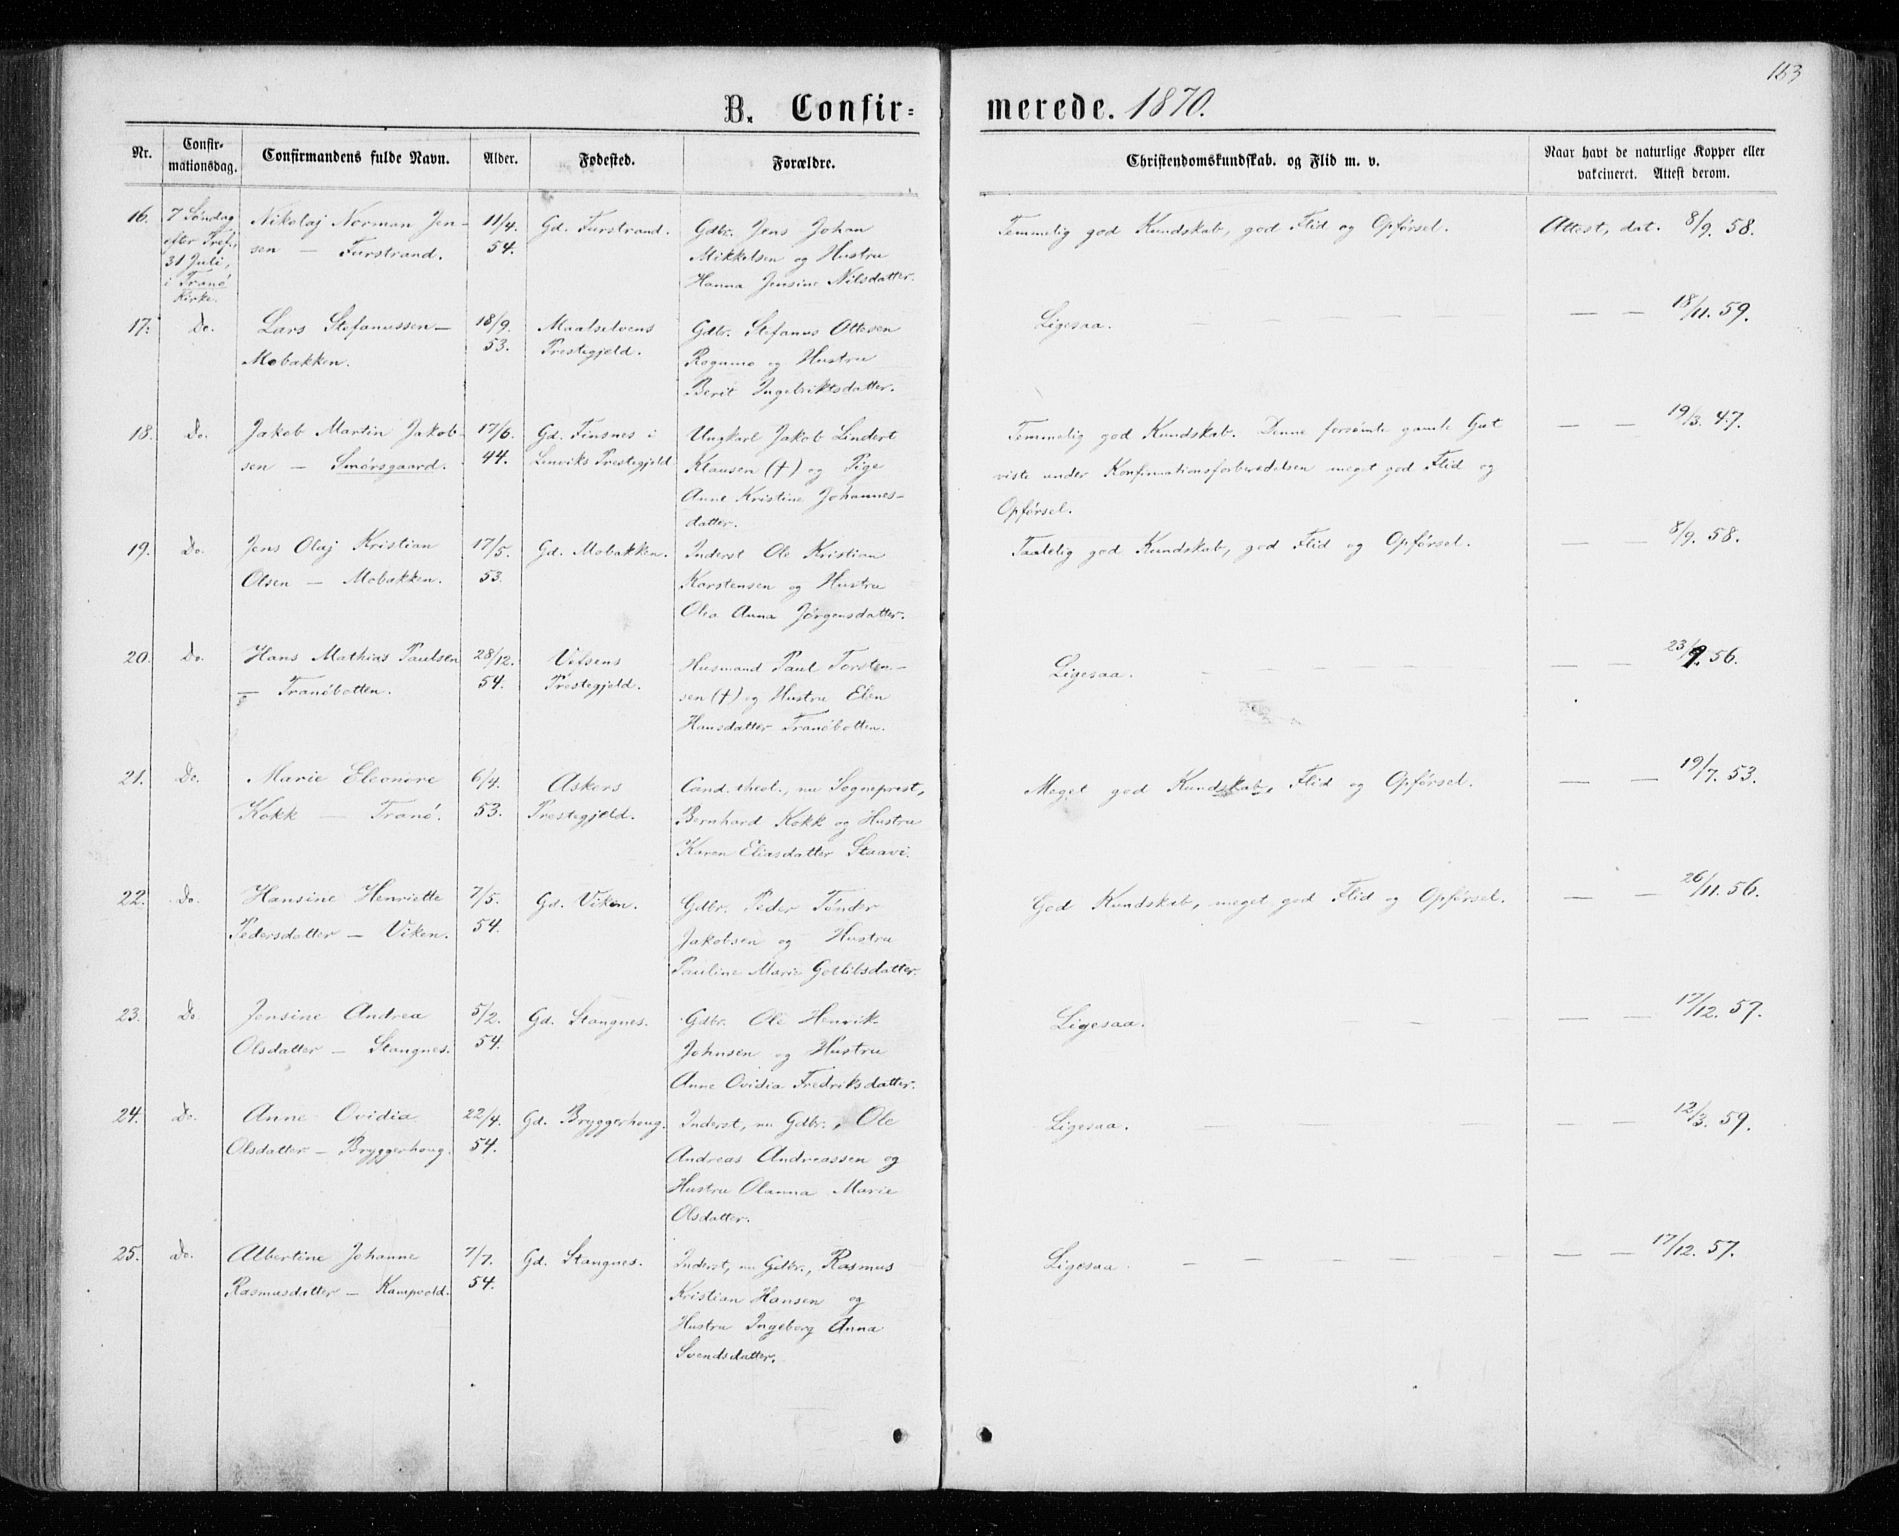 163
B. Confir=
merede. 1870.
Nr.
Confir-
mationsdag.
Confirmandens fulde Navn.
Alder.
Fødested.
Forældre.
Christendomskundskab. og Flid m. v.
Naar havt de naturlige Kopper eller
vakcineret. Attest derom.
16. 7 Søndag Nikolaj Norman Jen- 11/4 Gd. Furstrand. Gdbr. Jens Johan Temmelig god Kundskab, god Flid og Opførsel. Attest, dat. 8/9. 58.
efter Tref. sen — Furstrand. 54. Mikkelsen og Hustru
31 Juli, Hanna Jensine Nilsdatter.
i Tranø
Kirke.
17. Do. Lars Stefanussen — 18/9. Maalselvens Gdbr. Stefanus Ottesen Ligesaa. — — — — — — 18/11. 59.
Mobakken. 53. Prestegjeld. Rognmo og Hustru
Berit Ingebriktsdatter.
18. Do. Jakob Martin Jakob- 17/6. Gd. Finsnes i Ungkarl Jakob Lindert Temmelig god Kundskab. Denne forsømte gamle Gut — — 19/3. 47.
sen — Smørsgaard. 44. Lenviks Prestegjeld Klausen (†) og Pige viste under Konfirmationsforberedelsen meget god Flid og
Anne Kristine Johannes- Opførsel.
datter.
19. Do. Jens Olaj Kristian 17/5. Gd. Mobakken. Inderst Ole Kristian Taalelig god Kundskab, god Flid og Opførsel. — — 8/9. 58.
Olsen — Mobakken. 53. Karstensen og Hustru
Olea Anna Jørgensdatter.
20. Do. Hans Mathias Paulsen 28/12. Vefsens Husmand Paul Torsten- Ligesaa. — — — — — — 23/9. 56.
— Tranøbotten. 54. Prestegjeld. sen (†) og Hustru Elen
Hansdatter Tranøbotten.
21. Do. Marie Eleonore 6/4. Askers Cand. theol., nu Sogneprest, Meget god Kundskab, Flid og Opførsel. — — 19/7. 53.
Kokk — Tranø. 53. Prestegjeld. Bernhard Kokk og Hustru
Karen Eliasdatter Staavi.
22. Do. Hansine Henriette 7/5. Gd. Viken. Gdbr. Peder Tønder God Kundskab, meget god Flid og Opførsel. — — 26/11. 56.
Pedersdatter — Viken. 54. Jakobsen og Hustru
Pauline Marie Gotlibsdatter.
23. Do. Jensine Andrea 5/2. Gd. Stangnes. Gdbr. Ole Henrik Ligesaa. — — — — — 17/12. 57.
Olsdatter — Stangnes. 54. Johnsen og Hustru
Anne Ovidia Fredriksdatter.
24. Do. Anne Ovidia 22/4. Gd. Bryggerhoug. Inderst, nu Gdbr., Ole Ligesaa. — — — — — — 12/3. 59.
Olsdatter — Bryggerhoug. 54. Andreas Andreassen og
Hustru Olanna Marie
Olsdatter.
25. Do. Albertine Johanne 7/7. Gd. Stangnes. Inderst, nu Gdbr., Rasmus Ligesaa. — — — — — — 17/12. 57.
Rasmusdatter — Kampvold. 54. Kristian Hansen og
Hustru Ingeborg Anna
Svendsdatter.